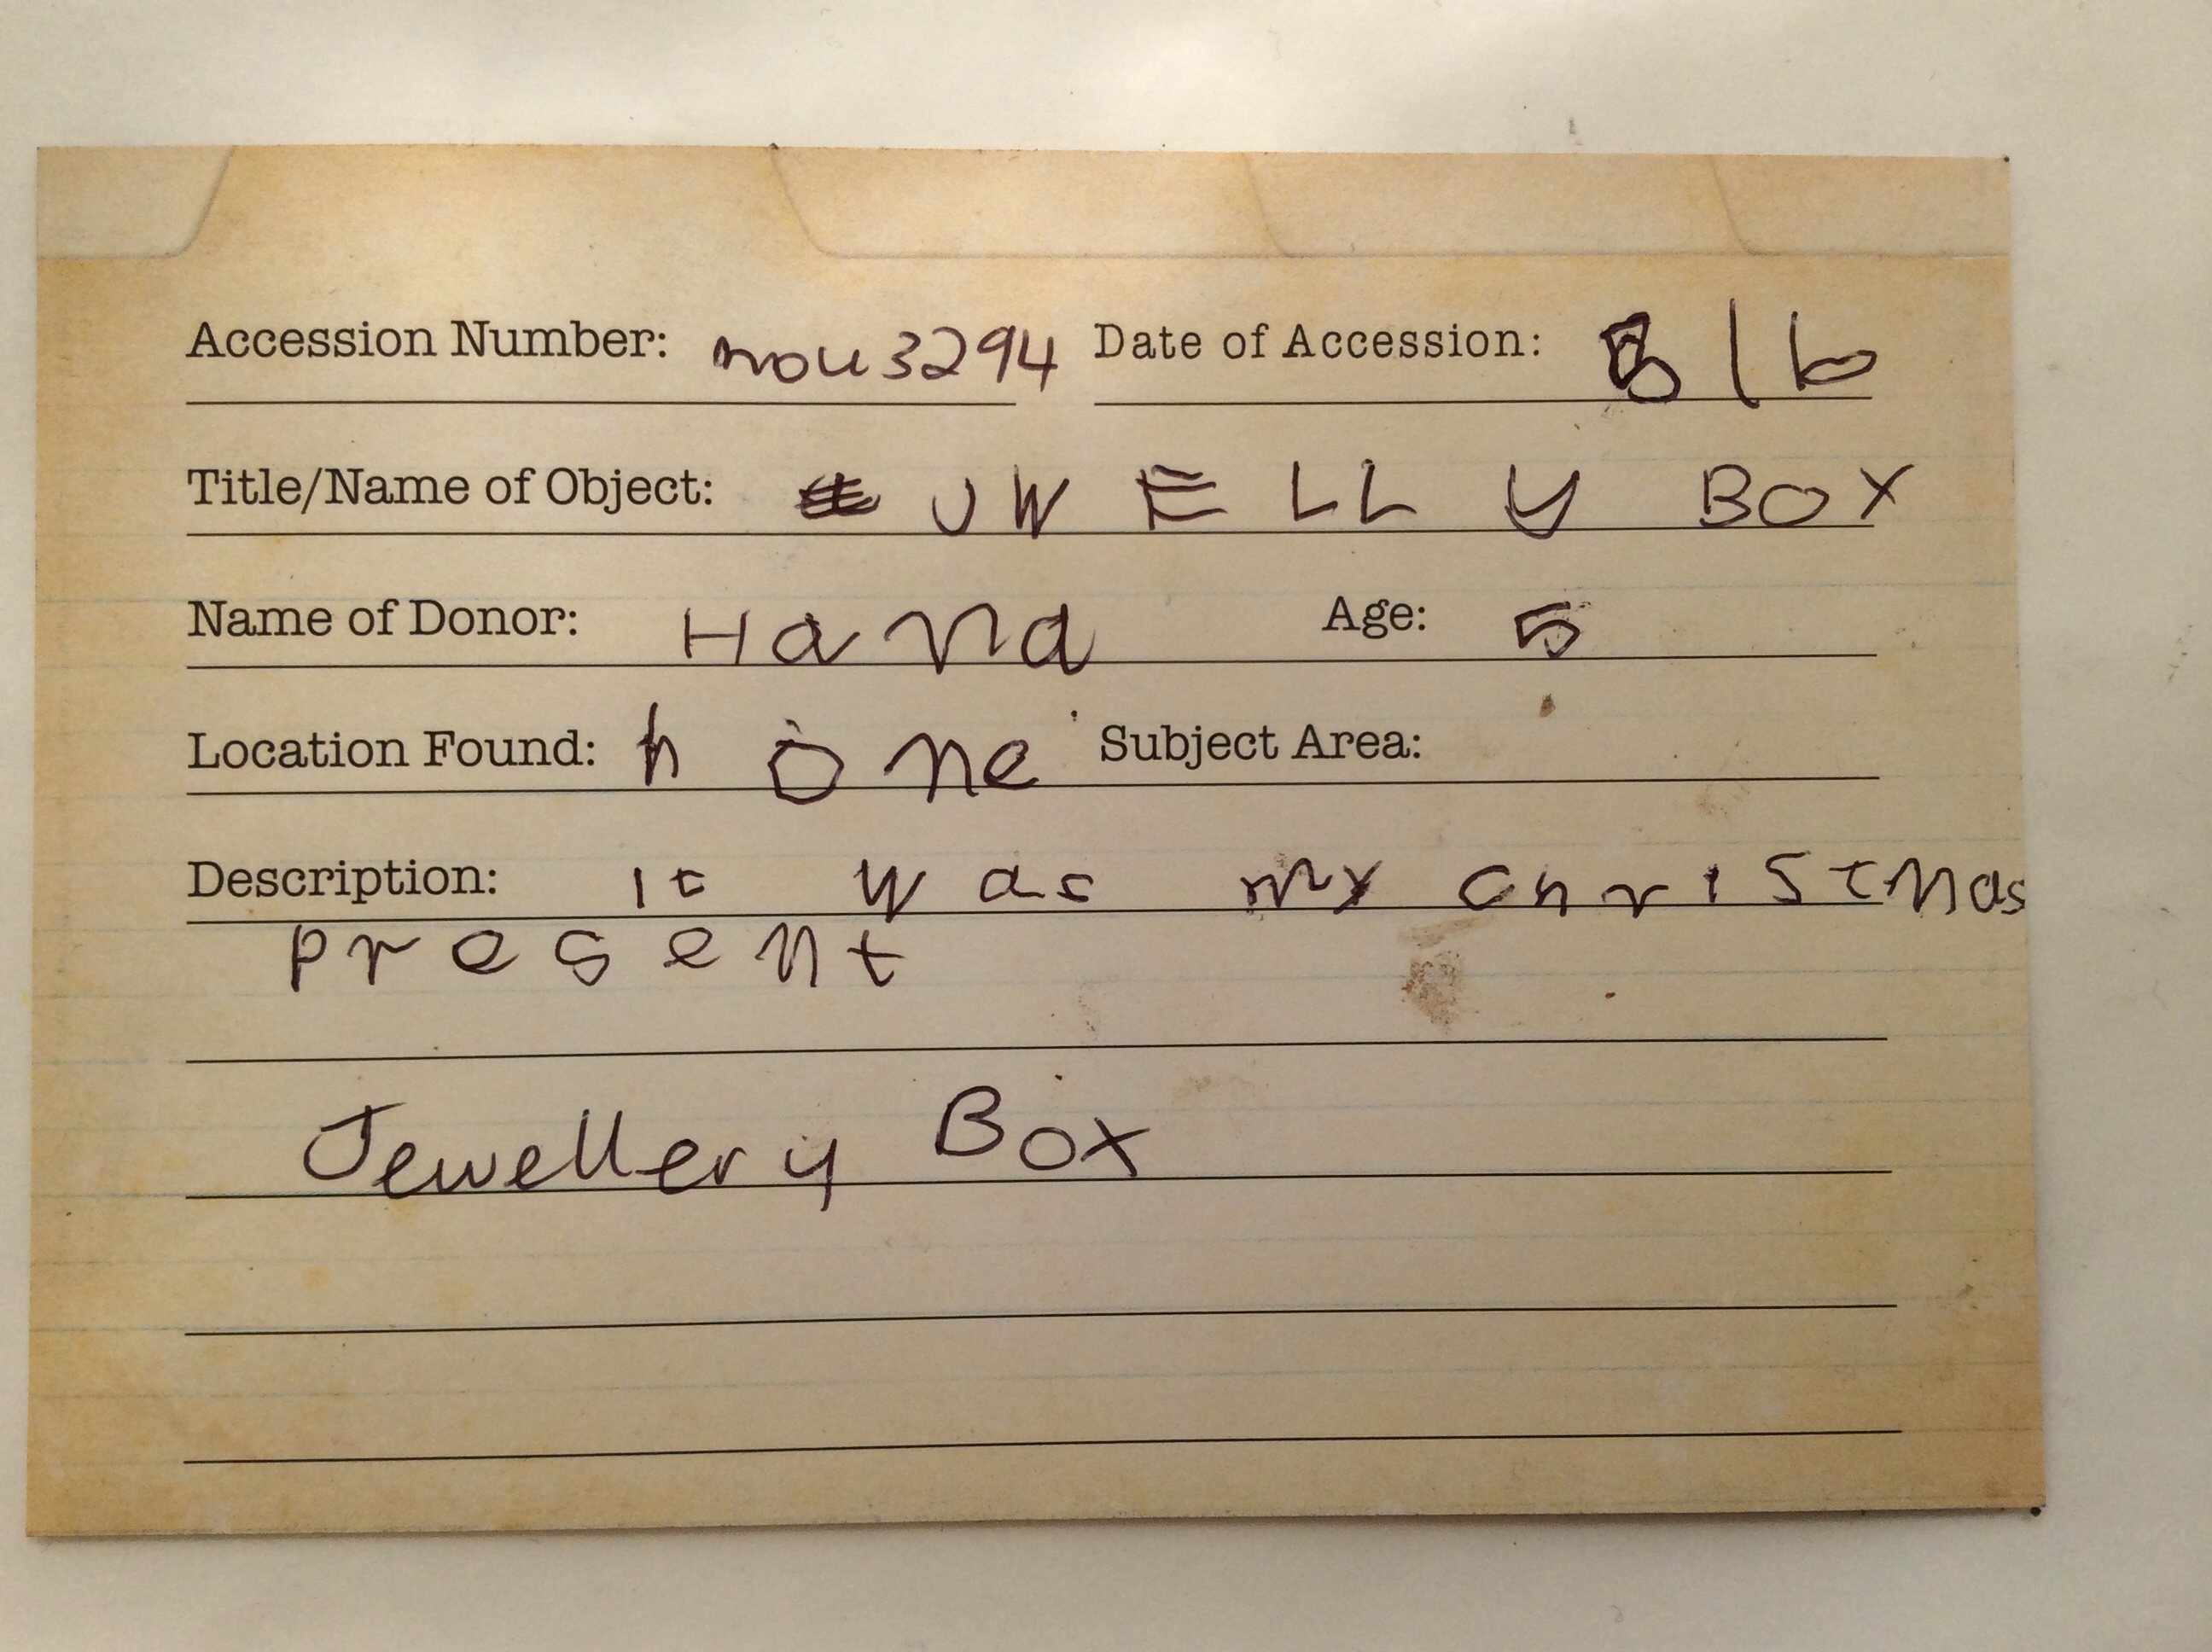 Accession Number: mou3294 Date of Accession: 8 1 6
Title/Name of Object: JWELLY BOX
Name of Donor: Hana Age: 5
Location Found: home Subject Area:
Description: It was my christmas
present
Jewellery Box